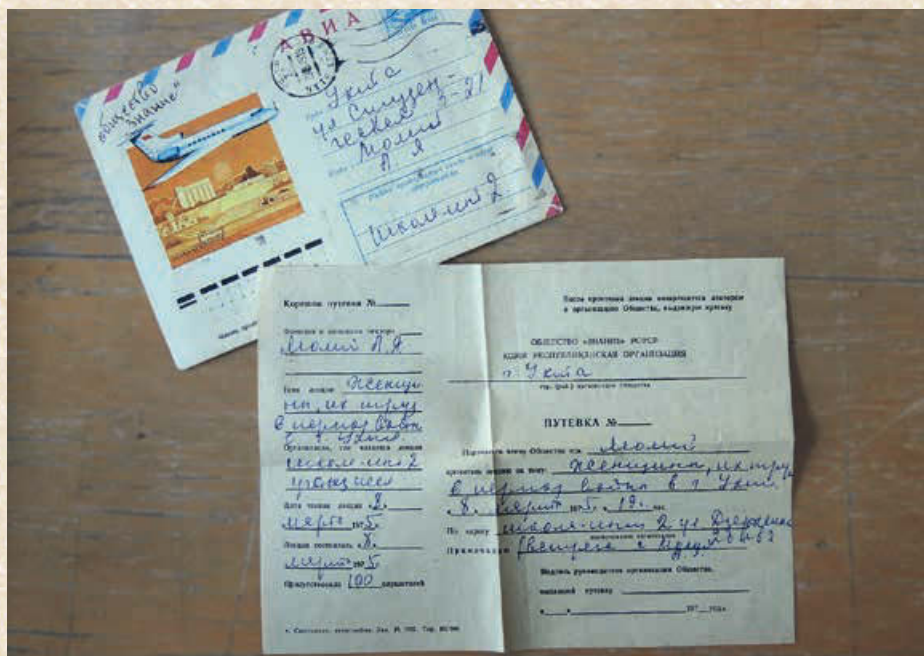 АВИА
общество
"Знание"
Ухта
ул Студен-
ческая 3-21
Молий
А Я
школа-инт 2
Корешок путевки №
Фамилия и инициалы лектора
Молий А.Я
Тема лекции Женщи-
ны, их труд
в период войны
в г. Ухте
Организация, где читалась лекция
школа-инт 2
учащиеся
Дата чтения лекции «8»
марта 1975
Лекция состоялась «8»
марта 1975
Присутствовало 100 слушателей
После прочтения лекции возвращается лектором
в организацию Общества, выдавшую путевку
ОБЩЕСТВО «ЗНАНИЕ» РСФСР
КОМИ РЕСПУБЛИКАНСКАЯ ОРГАНИЗАЦИЯ
г. Ухта
гор. (рай.) организация Общества
ПУТЕВКА №
Поручается члену Общества тов. Молий
прочитать лекцию на тему: Женщины, их труд
в период войны в г. Ухт
«8» марта 1975 в 19 час.
По адресу школа-инт 2 ул Дзержинс
наименование организации
Примечание (встреча с
Подпись руководителя организации Общества,
выдавшей путевку
« » 197 года.